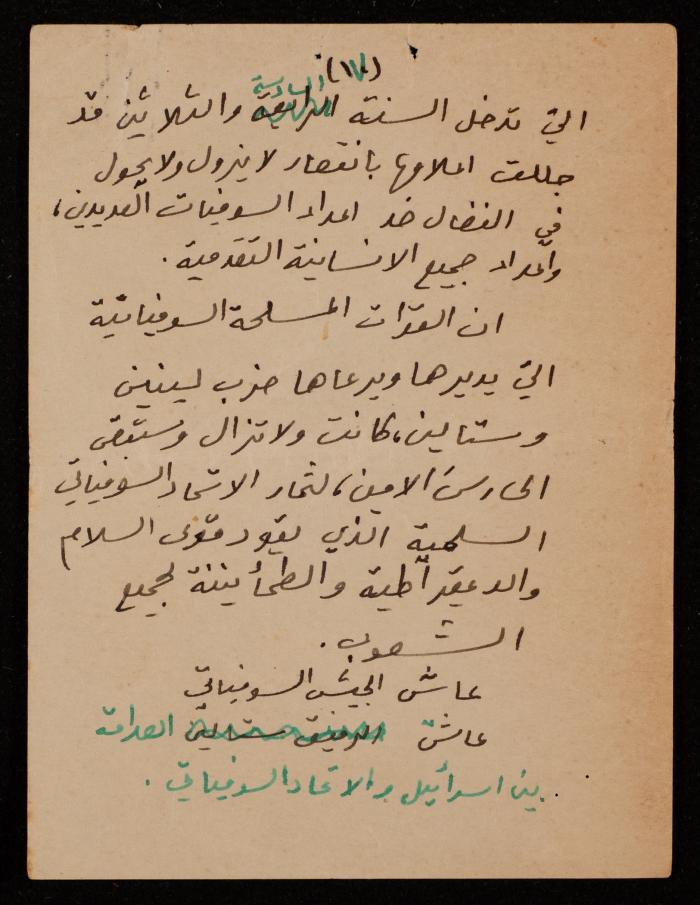 (١٧)
السادسة
التي تدخل السنة الرابعة والثلاثين قد
جللت اعلامها بانتصار لا يزول ولا يحول
في النضال ضد اعداء السوفيات العديدين،
وأعداء جميع الانسانية التقدمية.
ان القوّات المسلحة السوفياتيّة
التي يديرها ويرعاها حزب لينين
وستالين، كانت ولا تزال وستبقى
الحارسَ الامين، لثمار الاتحاد السوفياتي
السلمية الذي يقود قوى السلام
والديمقراطية والطمأنينة لجميع
الشعوب.
عاش الجيش السوفياتي
عاش الرفيق ستالين الصداقة
بين اسرائيل والاتحاد السوفياتي.